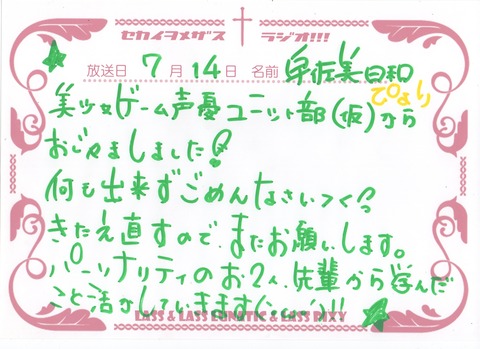 セカイヲメザス ラジオ!!!
放送日 7月14日 名前 卯佐美日和
ぴより
美少女ゲーム声優ユニット部(仮)から
おじゃましました!
何も出来ずごめんなさいっ
きたえ直すので、またお願いします。
パーソナリティのお2人、先輩から学んだ
こと活かしていきます(・∞・)!!
LASS & LASS LUNATIC & LASS PIXY